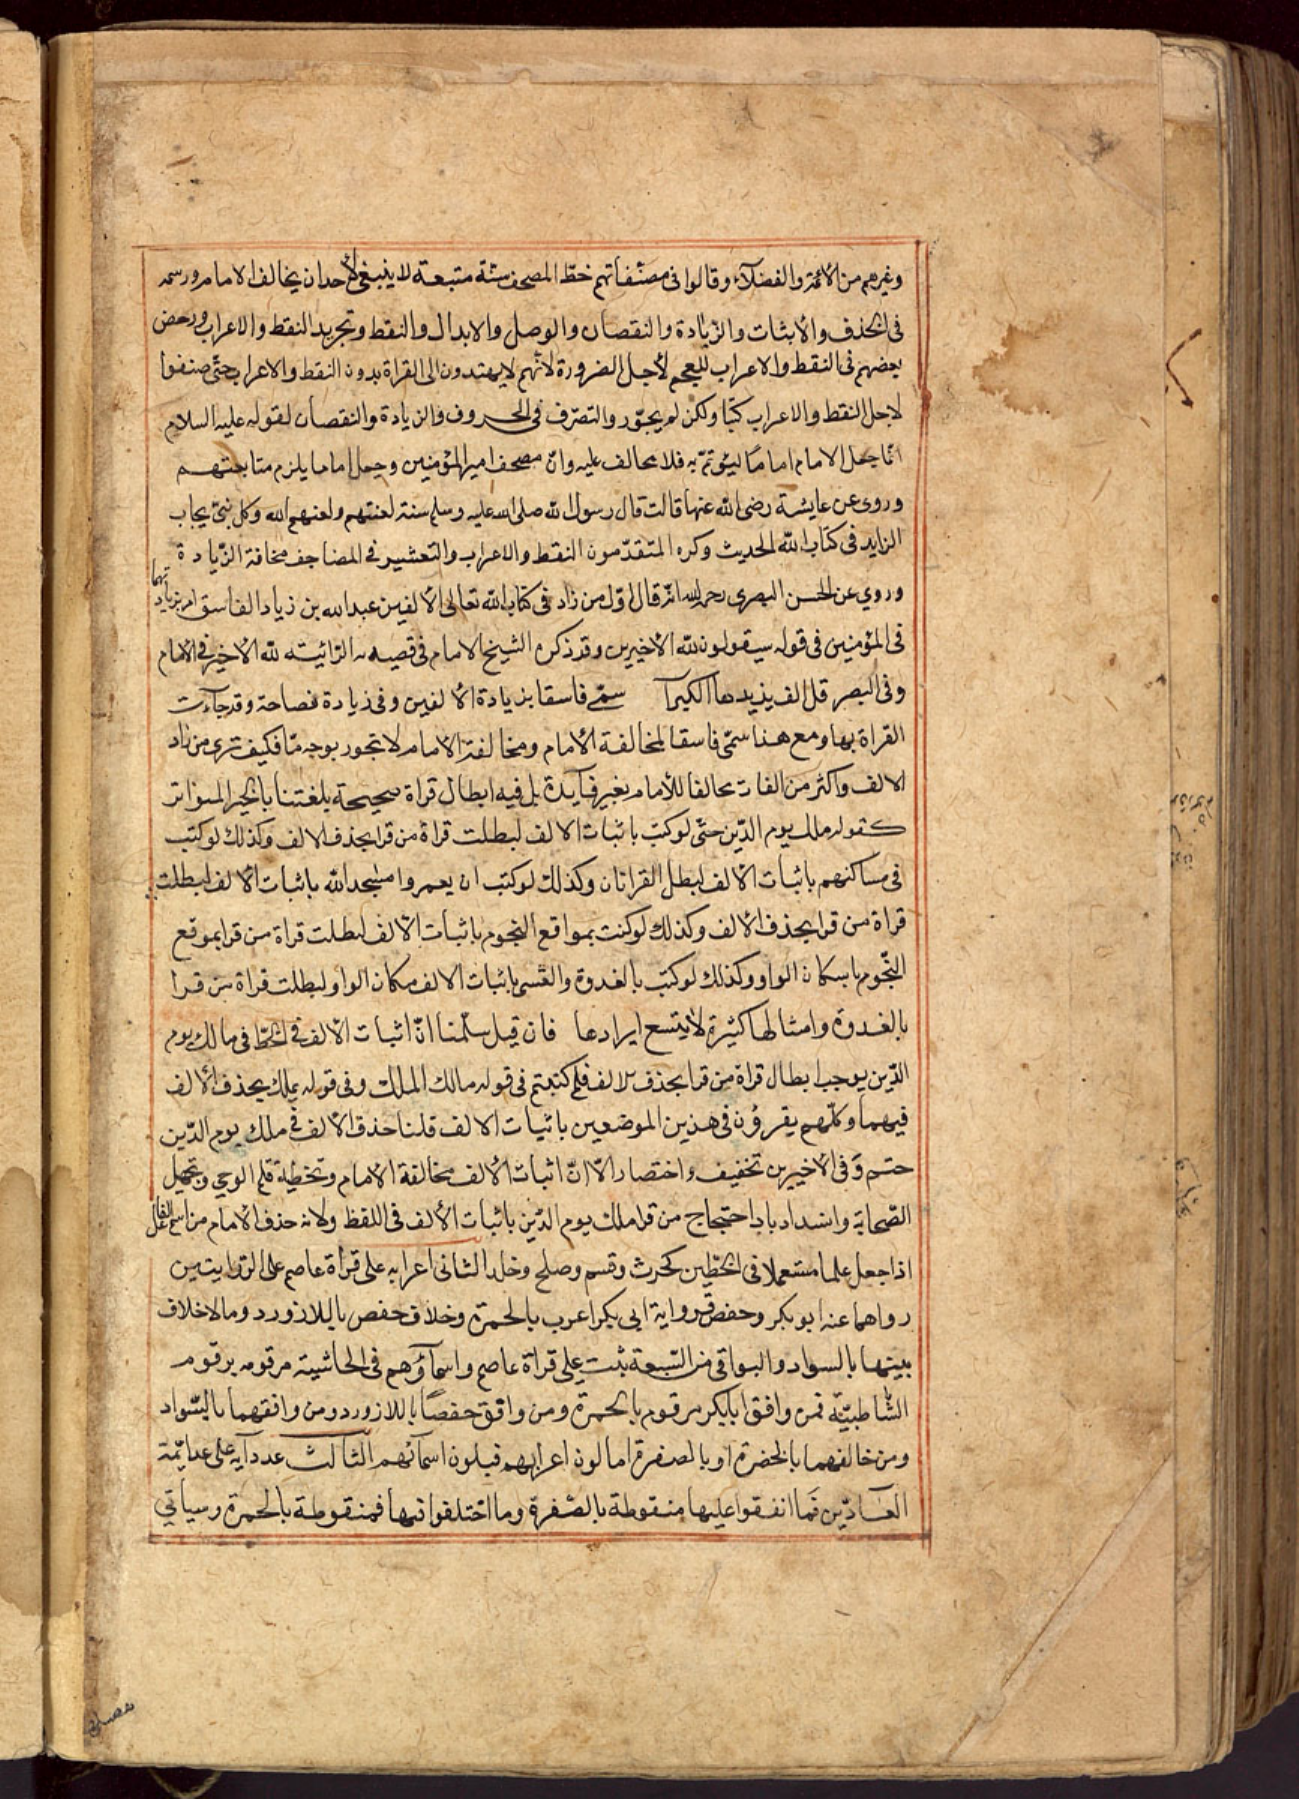 وغيرهم من الأئمة والفضلآء وقالوا فى مصنّفاتهم خطّ المصحف سنّة متبعة لا ينبغى لأحد ان يخالف الامام ورسمه
فى الحذف والأثبات والزّيادة والنقصان والوصل والابدال والنقط وتجريد النقط والاعراب ورخص
بعضهم فى النقط والاعراب للعجم لأجل الضرورة لأنّهم لا يهتدون الى القراة بدون النقط والاعراب حتّى صنفوا
لاجل النقط والاعراب كتبا ولكن لم يجوّروا التصرّف فى الحروف والزيادة والنقصان لقوله عليه السلام
انّما جعل الامام اماماً ليئوتمّ به فلا يخالف عليه وانّ مصحف امير المؤمنين وجعل اماما يلزم متابعتهم
وروى عن عايشة رضى الله عنها قالت قال رسول الله صلى الله عليه وسلم ستة لعنتهم ولعنهم الله وكل نبىّ يجاب
الزايد فى كتاب الله الحديث وكره المتقدّمون النقط والاعراب والتعشير فى المصاحف مخافة الزّيادة
وروي عن الحسن البصرى رحمه الله انّه قال اوّل من زاد فى كتاب الله تعالى الألفين عبد الله بن زياد الفاسق امر بزيادتهما
فى المؤمنين فى قوله سيقولون لله الأخيرين وقد ذكره الشيخ الامام فى قصيدته الرّائيته لله الأخير فى الامام
وفى البصر قل الف يزيدها الكبرآ سمّى فاسقا بزيادة الألفين وفى زيادة فصاحة وقد جآءت
القراة بها ومع هذا سمّى فاسقا لمخالفة الأمام ومخالفة الأمام لا تجور بوجه مّا فكيف ترى من زاد
الالف واكثر من الفات مخالفا للأمام بغير فآيدة بل فيه ابطال قراة صحيحة بلغتنا بالخبر المتواتر
كقوله ملك يوم الدّين حتّى لو كتب باثبات الالف لبطلت قراة من قرا بحذف الالف وكذلك لو كتب
فى مساكنهم باثبات الألف لبطل القراتان وكذلك لو كتب ان يعمروا مسجد الله باثبات الألف لبطلت
قراة من قرا بحذف الألف وكذلك لو كتبت بمواقع النجوم باثبات الألف لبطلت قراة من قرا بموقع
النّجوم باسكان الواو وكذلك لو كتب بالغدوة والعشى باثبات الالف مكان الواو لبطلت قراة من قرا
بالغدوة وامثالها كثيرة لا يتسع ايرادها فان قيل سلّمنا انّ اثبات الألف فى الخطّ فى مالك يوم
الدّين يوجب ابطال قراة من قرا بحذف الالف فلم كتبتم فى قوله مالك الملك وفى قوله بملك بحذف الألف
فيهما وكلّهم يقرؤن فى هذين الموضعين باثبات الالف قلنا حذف الألف فى ملك يوم الدّين
حتم وفى الأخيرين تخفيف واختصار الّا انّ اثبات الألف مخالفة الامام وتخطية قلم الوحى وتجهيل
الصّحابة وانسداد باب احتجاج من قرا ملك يوم الدّين باثبات الألف فى اللقظ ولانه حذف الأمام من اسم الفاعل
اذا جعل علما مستعملا فى الخطّين كحرث وقسم وصلح وخلد الثانى اعرابه على قراة عاصم على الرّوايتين
رواهما عنه ابو بكر وحفص فرواية ابى بكر اعرب بالحمرة وخلاف حفص باللازورد وما لا خلاف
بينهما بالسواد والبواقى من السّبعة بنيت على قراة عاصم واسمآؤهم فى الحاشية مرقومه برقوم
الشّاطبيّة فمن وافق ابا بكر مرقوم بالحمرة ومن وافق حفصاً باللازورد ومن وافقهما بالسّواد
ومن خالفهما بالخضرة او بالصفرة اما لون اعرابهم فبلون اسمآئهم الثالث عدد آيه على عد ايمّة
العآدّين فما اتفقوا عليها منقوطة بالصّفرة وما اختلفوا فيها فمنقوطة بالحمرة وسيأتى